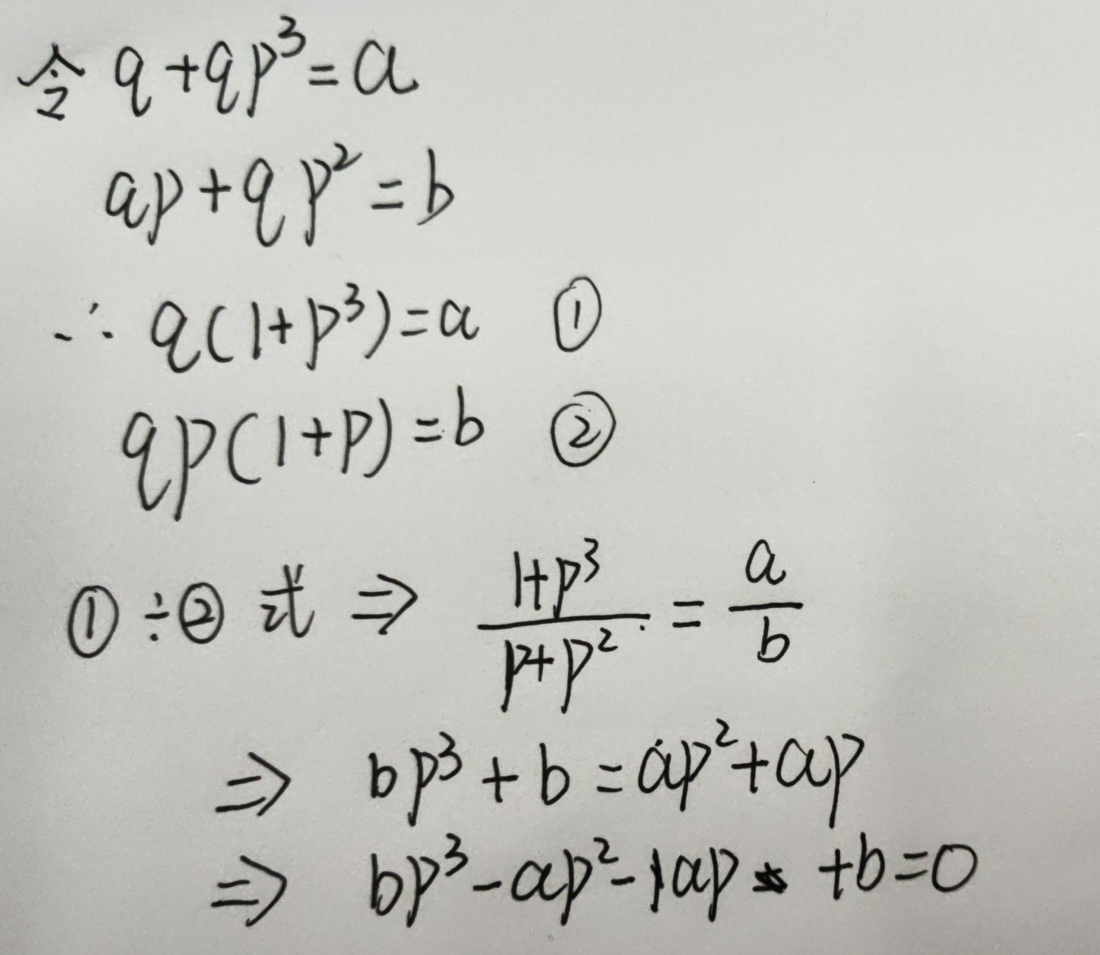 令 q+qp³=a
ap+qp²=b
∴ q(1+p³)=a ①
qp(1+p)=b ②
①÷②式 ⇒ (1+p³)/(p+p²) = a/b
⇒ bp³+b=ap²+ap
⇒ bp³-ap²-1ap +b=0